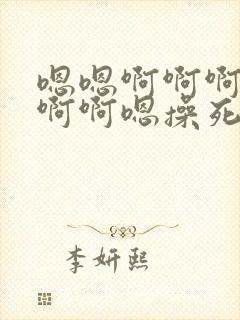 嗯嗯啊啊啊
啊啊嗯操死
李妍熙